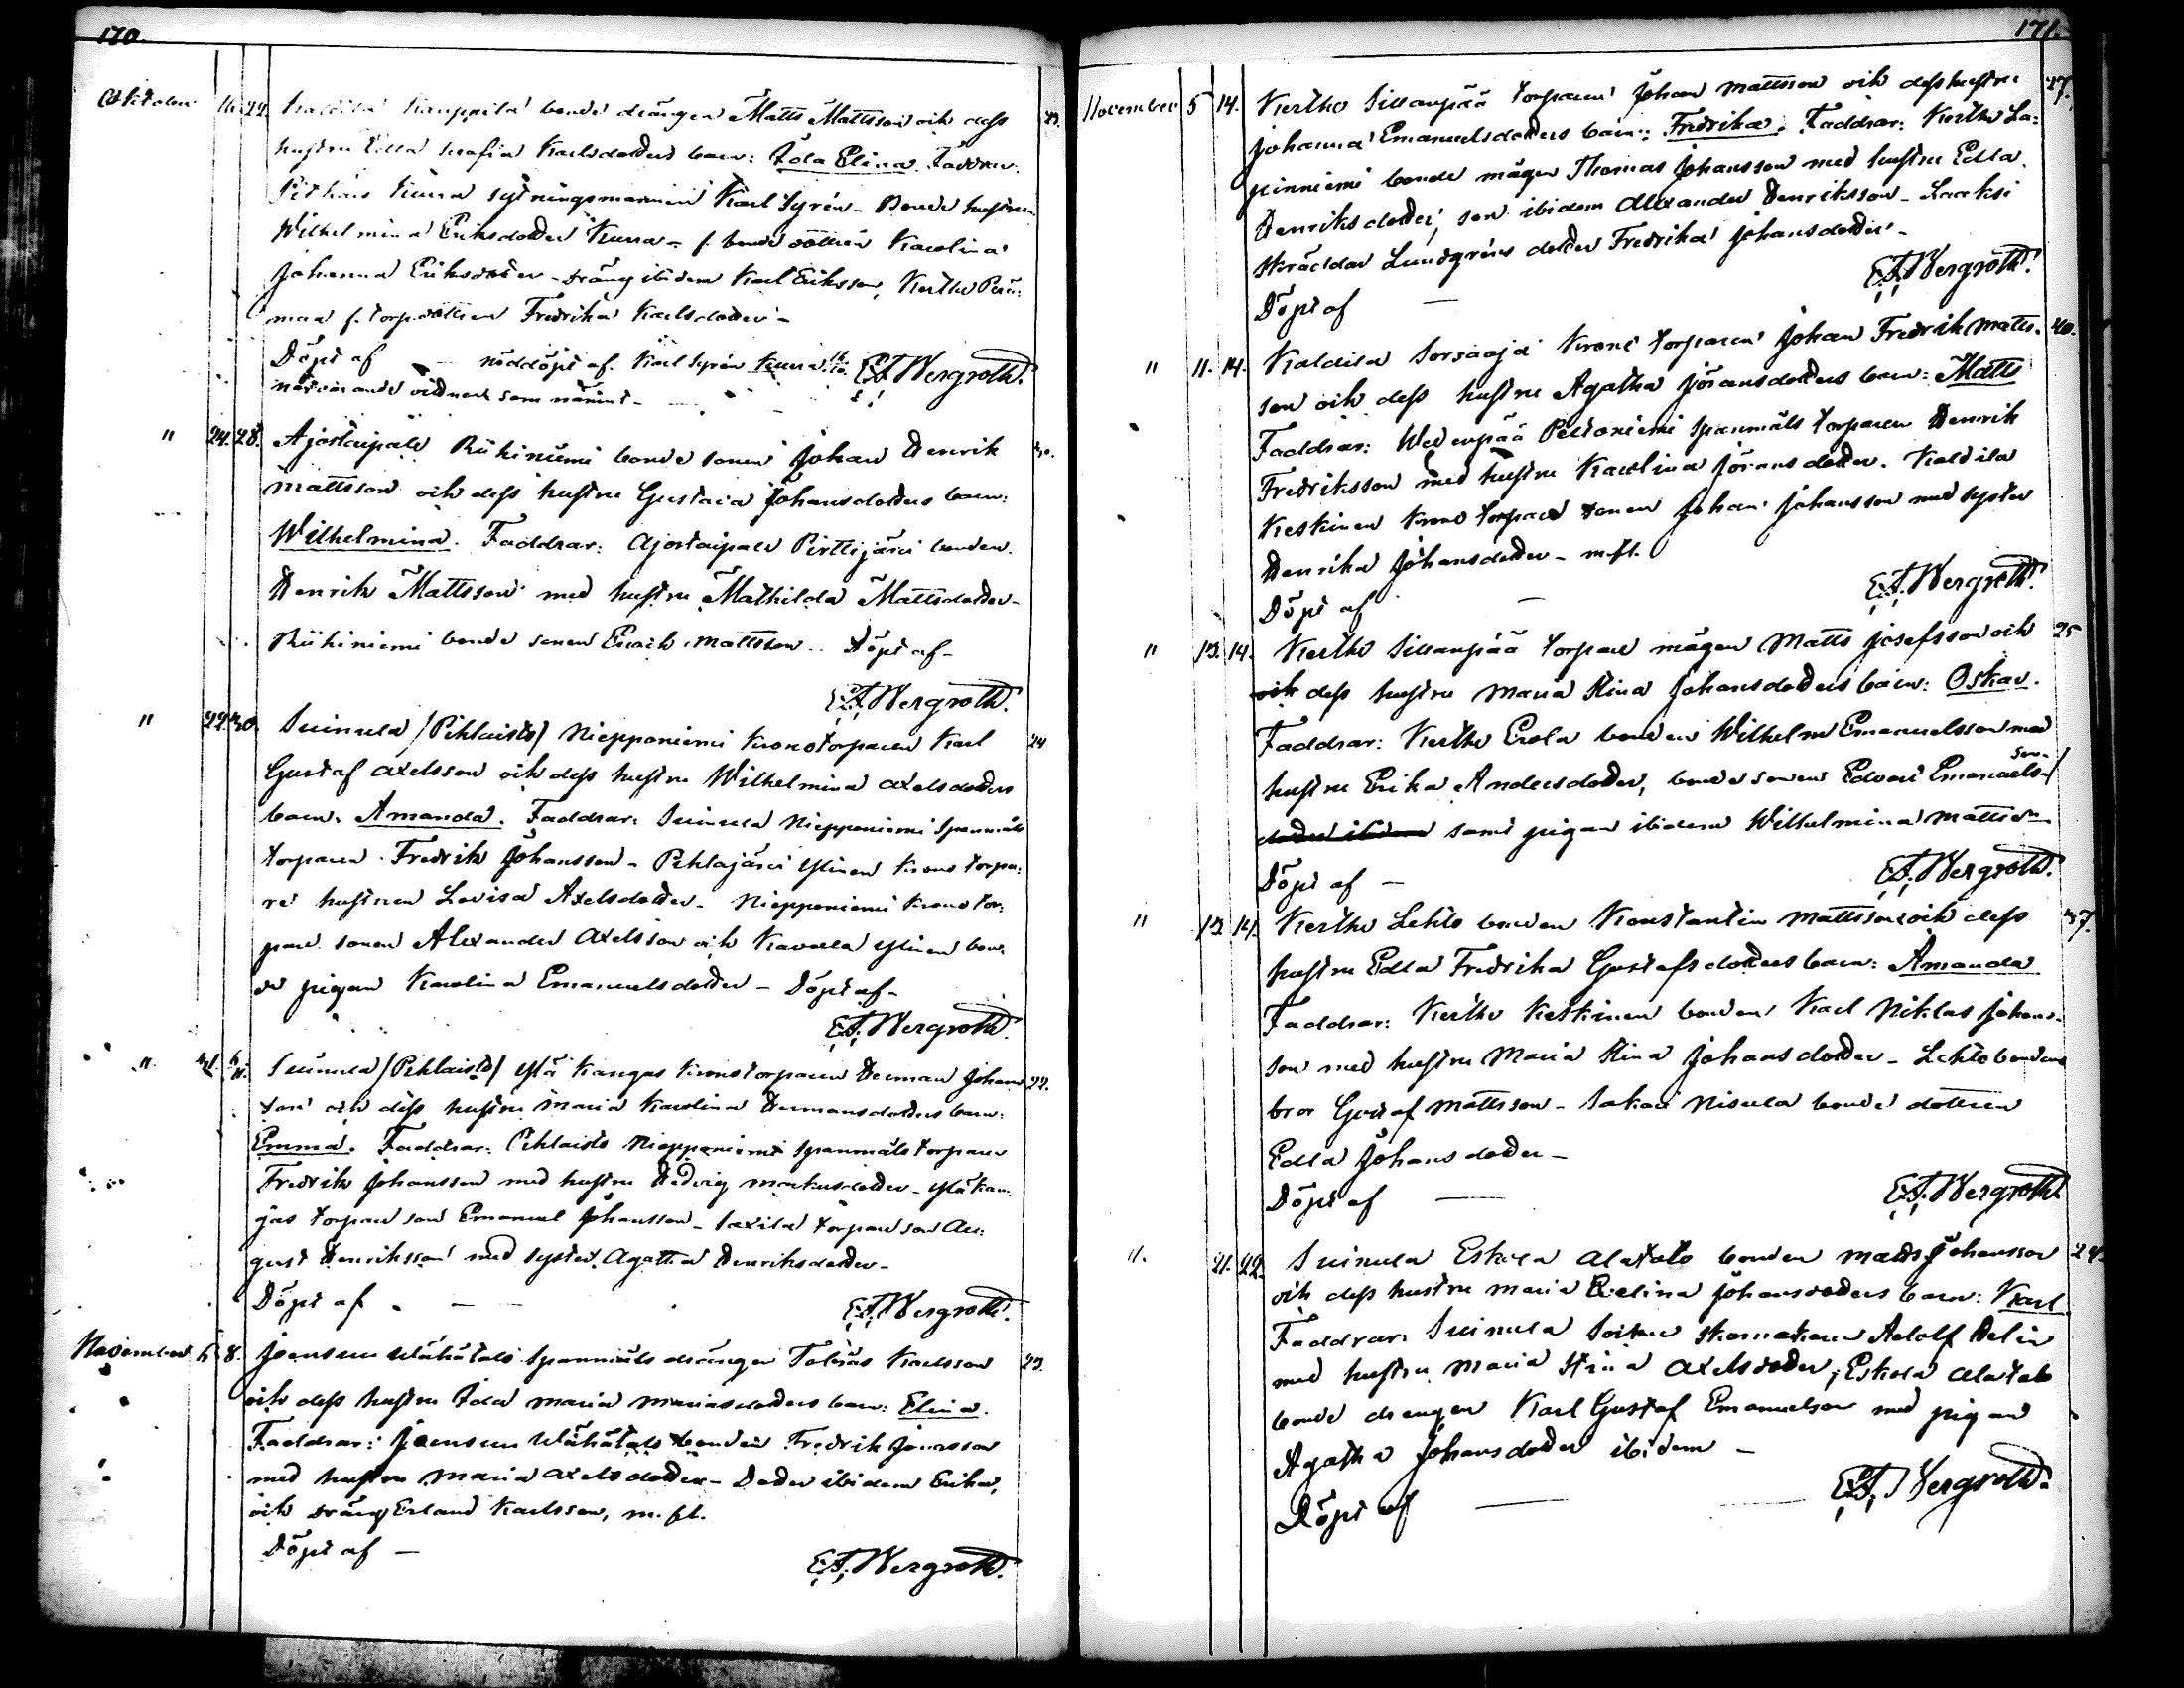 170.
Oktober 16. 22. Kaldila Kauppila bonde drängen Matts Mattsson och dess
hustru Edla Serafia Karlsdotters barn: Ida Elina. Faddrar:
Kuura sytningsmannen Karl Syrén - Bonde hustrun
Wilhelmina Eriksdotter Kuura - f. bonde dottren Karolina
Johanna Eriksdotter - Dräng ibidem Karl Eriksson, Kertko
f. torp. dottren Fredrika Karlsdotter -
Döpt af — nöddöpt af Karl Syrén Kuura E.F. Bergroth.
närvarande vidnen som nämnt -
" 24. 28. Ajostaipale Riihiniemi bonde sonen Johan Henrik
Mattsson och dess hustru Gustava Johansdotters barn:
Wilhelmina. Faddrar: Ajostaipale Pirttijärvi bonden
Henrik Mattsson med hustru Mathilda Mattsdotter -
Riihiniemi bonde sonen Enock Mattsson. Döpt af -
E.F. Bergroth.
" 22. 30. Suinula /Pihlaisto/ Niepponiemi Kronotorparen Karl 24
Gustaf Axelsson och dess hustru Wilhelmina Axelsdotters
barn: Amanda. Faddrar: Suinula Niepponiemi Spanmåls
torparen Fredrik Johansson - Pihlajärvi Ylinen Krono torpa:
re hustrun Lovisa Axelsdotter - Niepponiemi Krono tor:
pare sonen Alexander Axelsson och Kavala Ylinen bon:
de pigan Karolina Emanuelsdotter - Döpt af -
E.F. Bergroth.
" 31. Suinula /Pihlaisto/ Ylä Kangas Kronotorparen Herman Johans 22.
son och dess hustru Maria Karolina Hermansdotters barn:
Emma. Faddrar: Pihlaisto Niepponiemi Spanmåls torparen
Fredrik Johansson med hustru Hedvig Markusdotter - Yläkan:
gas torpare son Emanuel Johansson - Saxila torpare son Au:
gust Henriksson med syster Agatha Henriksdotter -
Döpt af — E.F. Bergroth.
November 6. 8. Joensuu Wähätalo Spanmåls drängen Tobias Karlsson 23.
och dess hustru Ida Maria Mariasdotters barn: Elina.
Faddrar: Joensuu Wähätalo bonden Fredrik Jonasson
med hustru Maria Axelsdotter - Dotter ibidem Erika,
och Dräng Erland Karlsson, m. fl.
Döpt af —
E.F. Bergroth.
171.
November 5 14. Kertko Sillanpää torparen Johan Mattsson och dess hustru 27.
Johanna Emanuelsdotters barn: Fredrika. Faddrar: Kertko La:
pinniemi bonde mågen Thomas Johansson med hustru Edla
Henriksdotter, son ibidem Alexander Henriksson - Laaksi
Skräddar Lundgréns dotter Fredrika Johansdotter -
E.F. Bergroth.
Döpt af —
" 11. 14. Kaldila Sorsaoja Krono torparen Johan Fredrik Matts- 40.
son och dess hustru Agatha Jöransdotters barn: Matts
Faddrar: Wedenpää Peltoniemi Spanmåls torparen Henrik
Fredriksson med hustru Karolina Jöransdotter. Kaldila
Keskinen Krono torpare sonen Johan Johansson med syster
Henrika Johansdotter - m. fl.
Döpt af — E.F. Bergroth.
" 13. 14. Kertko Sillanpää torpare mågen Matts Josefsson och 25
och dess hustru Maria Stina Johansdotters barn: Oskar.
Faddrar: Kertko Erola bonden Wilhelm Emanuelsson med
hustru Erika Andersdotter, bonde sonen Edvard Emanuels-
son
dotter ibidem samt pigan ibidem Wilhelmina Matts
Döpt af — E.F. Bergroth.
" 13. 14. Kertko Lehto bonden Konstantin Mattsson och dess 37.
hustru Edla Fredrika Gustafsdotters barn: Amanda
Faddrar: Kertko Keskinen bonden Karl Niklas Johans-
son med hustru Maria Stina Johansdotter - Lehto bondens
bror Gustaf Mattsson - Sakari Nisula bonde dottren
Edla Johansdotter -
Döpt af — E.F. Bergroth.
" 21. 22. Suinula Eskola Alatalo bonden Matts Johansson 24.
och dess hustru Maria Evelina Johansdotters barn: Karl
Faddrar: Suinula Soikun skomakaren Adolf Helin
med hustru Maria Stina Axelsdotter, Eskola Alatalo
bonde drengen Karl Gustaf Emanuelson med pigan
Agatha Johansdotter ibidem -
Döpt af — E.F. Bergroth.